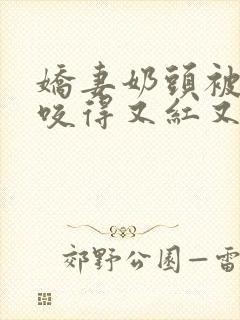 嬌妻奶頭被
咬得又紅又
郊野公園—雷